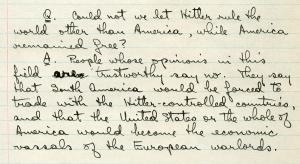 Q. Could not we let Hitler rule the
world other than America, while America
remained free?
A. People whose opinions in this
field are trustworthy say no. They say
that South America would be forced to
trade with the Hitler-controlled countries,
and that the United States or the whole of
America would become the economic
vassals of the European warlords.